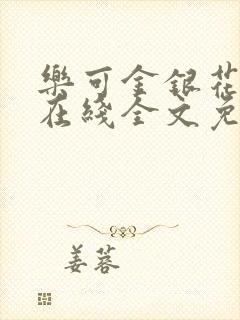 樂可金銀花
在綫全文免
姜蓉